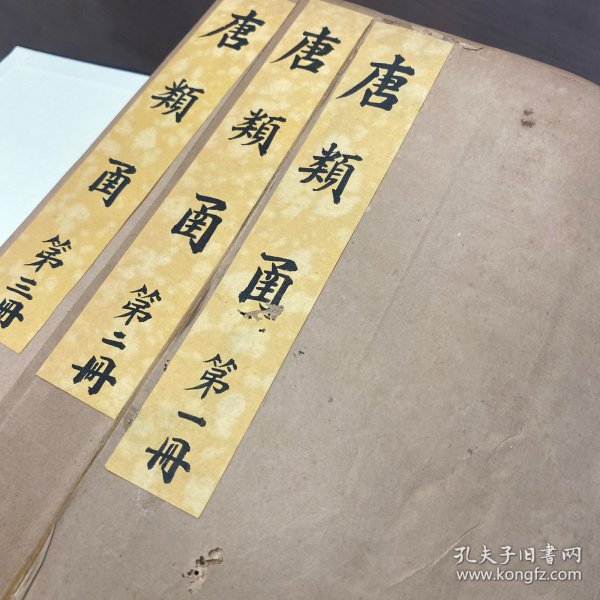 唐類函 第一冊
唐類函 第二冊
唐類函 第三冊
孔夫子旧书网
www.kongfz.com